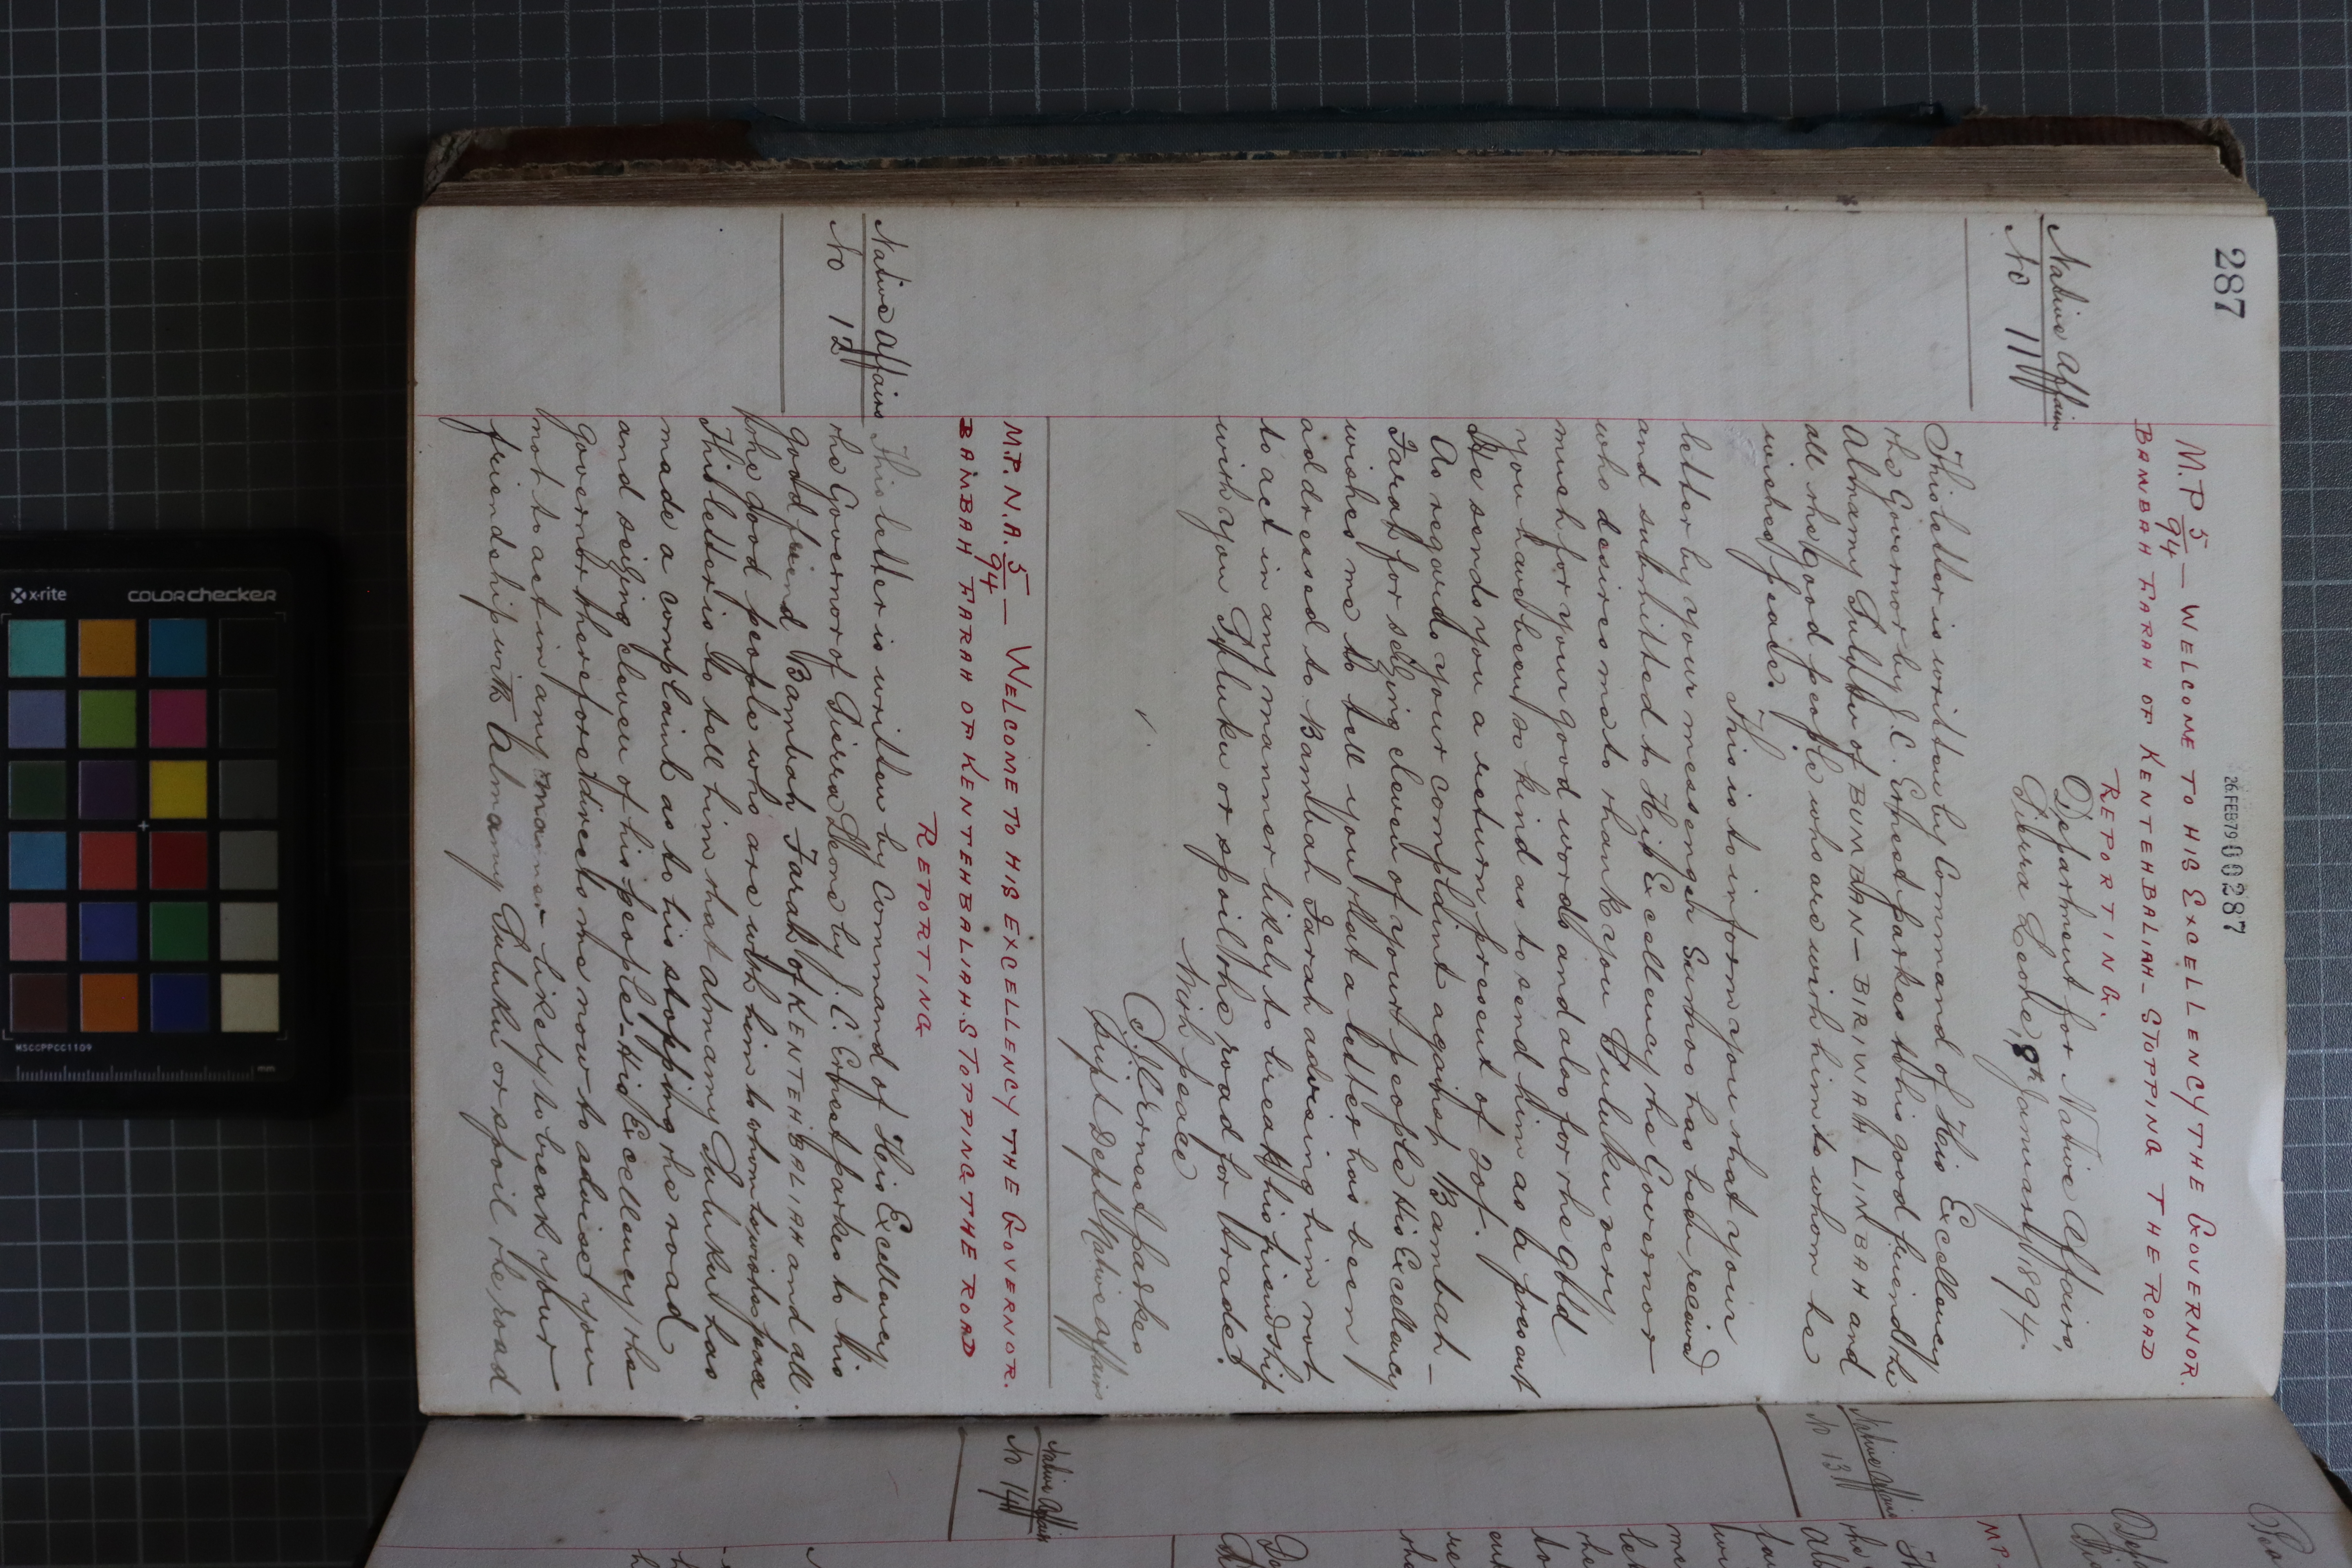 287
26 FEB 79 000287
M.P. 5/94 — WELCOME TO HIS EXCELLENCY THE GOVERNOR.
BAMBAH FARAH OF KENTEHBALIAH — STOPPING THE ROAD
REPORTING.
Native Affairs
No 11
Department for Native Affairs,
Sierra Leone, 8th January 1894.
This letter is written by Command of His Excellency
the Governor by J. C. Ernest Parkes to his good friend the
Almamy Suluku of BUMBAN — BIRIWAH LIMBAH and
all the good people who are with him to whom he
wishes peace.
This is to inform you that your
letter by your messenger has been received
and submitted to His Excellency the Governor
who desires me to thank you Suluku very
much for your good words and also for the gold
you have been so kind as to send him as a present
He sends you a return present of 20/-.
As regards your complaint against Bambah —
Farah for seizing eleven of your people His Excellency
wishes me to tell you that a letter has been
addressed to Bambah Farah advising him not
to act in any manner likely to break his friendship
with you Suluku or spoil the road for trade.
With peace
J. C. Ernest Parkes
Supt Dept Native Affairs
M.P. N.A. 5/94 — WELCOME TO HIS EXCELLENCY THE GOVERNOR.
BAMBAH FARAH OF KENTEHBALIAH. STOPPING THE ROAD
REPORTING
Native Affairs
No 12
This letter is written by Command of His Excellency
the Governor of Sierra Leone by J. C. Ernest Parkes to his
good friend Bambah Farah of KENTEHBALIAH and all
the good people who are with him to whom he wishes peace
This letter is to tell him that Almamy Suluku has
made a complaint as to his stopping the road
and seizing eleven of his people — His Excellency the
Governor therefore directs me now to advise you
not to act in any manner likely to break your
friendship with Almamy Suluku or spoil the road
Native Affairs
No 13
Native Affairs
No 14
MP
x-rite
colorchecker
MSCCPPCC1109
mm